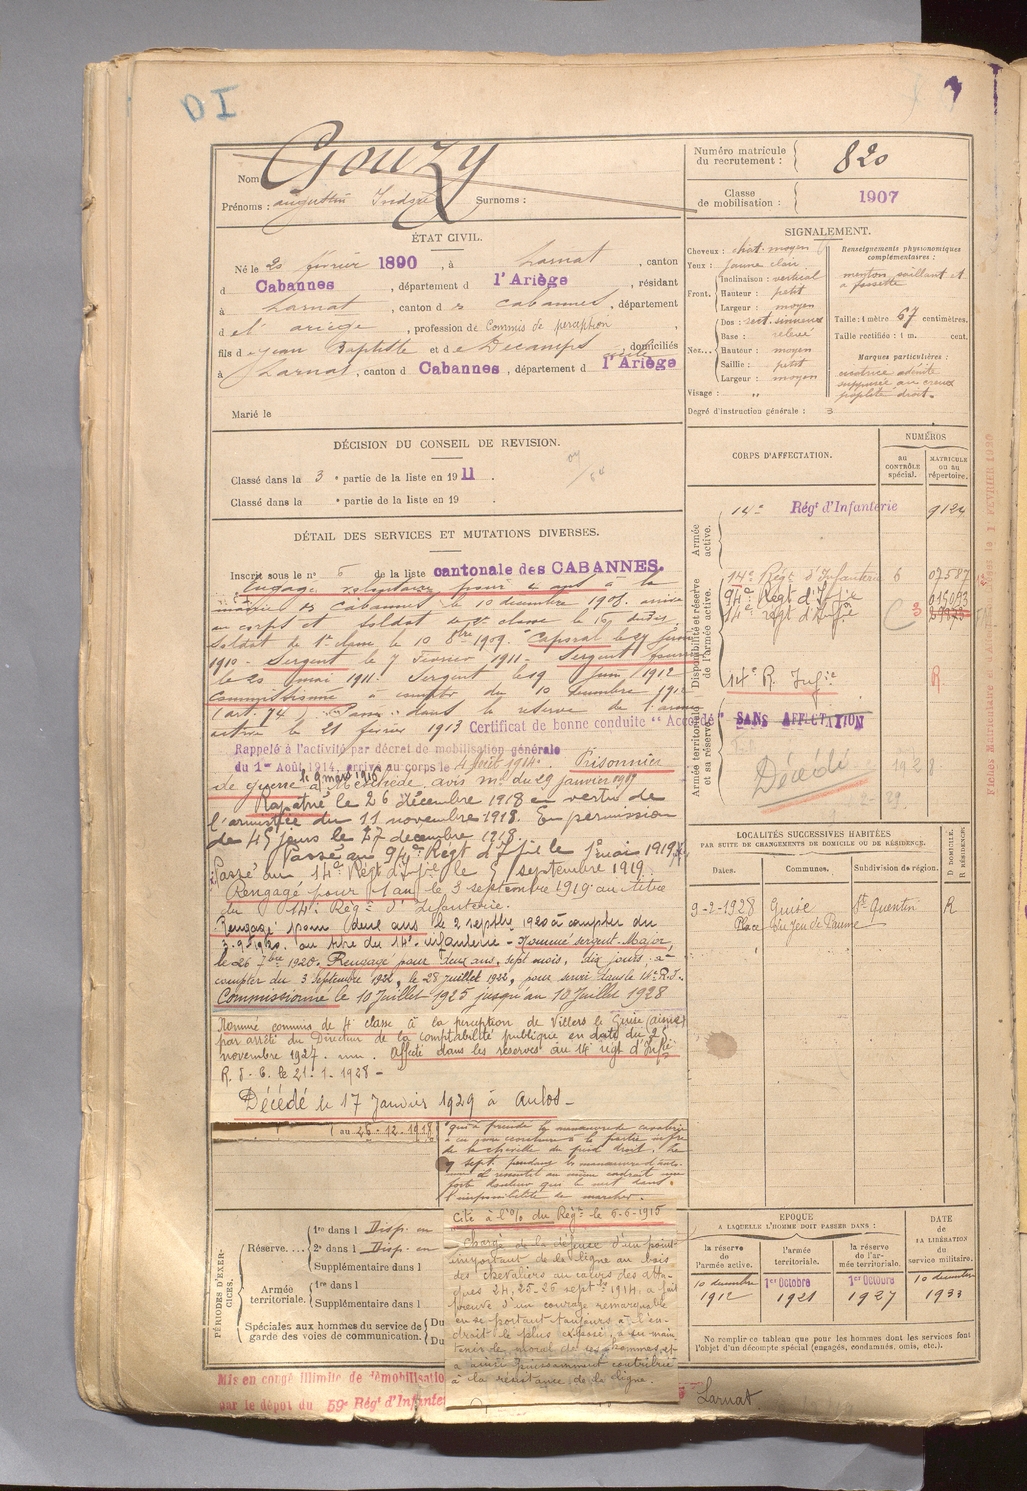 DI
Nom Gouzy
Prénoms : Augustin Surnoms :
Numéro matricule du recrutement : 820
Classe de mobilisation : 1907
ÉTAT CIVIL.
Né le 20 février 1890, à Larnat, canton
d Cabannes, département d l'Ariège, résidant
à Larnat, canton des Cabannes, département
d el ariège, profession de Commis de perception
fils de Jean Baptiste et de Decamps Cécile, domiciliés
à Larnat, canton d Cabannes, département d l'Ariège
Marié le
SIGNALEMENT.
Cheveux : chât. moyen
Yeux : jaune clair
Front. Inclinaison : vertical
Hauteur : petit
Largeur : moyen
Nez... Dos : rect. sinueux
Base : relevé
Hauteur : moyen
Saillie : petit
Largeur : moyen
Visage : "
Renseignements physionomiques complémentaires :
menton saillant et
à fossette
Taille : 1 mètre 67 centimètres.
Taille rectifiée : 1 m. cent.
Marques particulières :
cicatrice adénite
suppurée au creux
poplité droit.
Degré d'instruction générale : 3
DÉCISION DU CONSEIL DE REVISION.
Classé dans la 3 e partie de la liste en 1911.
Classé dans la e partie de la liste en 19 .
DÉTAIL DES SERVICES ET MUTATIONS DIVERSES.
Inscrit sous le n° 6 de la liste cantonale des CABANNES.
Engagé volontaire pour 4 ans à la
mairie des Cabannes le 10 décembre 1908. arrivé
au corps et soldat de 2e classe le
soldat de 1e classe le 10 8bre 1909. Caporal le
1910 - Sergent le 7 Février 1911 - Sergent fourrier
le 20 mai 1911. Sergent le 19 juin 1912
Commissionné à compter du 10 décembre 1912
(art. 74) Passé dans la réserve de l'armée
active le 21 février 1913 Certificat de bonne conduite "Accordé"
Rappelé à l'activité par décret de mobilisation générale
du 1er Août 1914, arrivé au corps le 4 Août 1914. Prisonnier
le 9 mars 1916
de guerre à Meschede avis m. du 29 janvier 1919
Rapatrié le 26 décembre 1918 en vertu de
l'armistice du 11 novembre 1918. En permission
de 45 jours le 27 décembre 1918.
Passé au 94e Régt d'Ifie le 1er mai 1919
Passé au 14e Régt d'Ifie le 5 septembre 1919.
Rengagé pour 1 an le 3 septembre 1919 au titre
du 14e Régt d'Infanterie.
Rengagé pour deux ans le 2 septbre 1920 à compter du
3.9.1920. au titre du 14e infanterie - Nommé sergent-Major
le 26 7bre 1920. Rengagé pour deux ans, sept mois, dix jours, à
compter du 3 Septembre 1922, le 28 juillet 1922, pour servir dans le 14e R.I.
Commissionné le 10 Juillet 1925 jusqu'au 10 Juillet 1928
Nommé commis de 4e classe à la perception de Villers le Guise (aisne)
par arrêté du Directeur de la comptabilité publique en date du 25
novembre 1927. Affecté dans les réserves au 14e régt d'Infie
R. d. C. le 21.1.1928 -
Décédé le 17 Janvier 1929 à Aulos -
au 26-12-1918
de la cheville du pied droit. Le
9 sept. pendant les manœuvres
il ressentit au même endroit une
forte douleur qui le mit dans
l'impossibilité de marcher.
Cité à l'O/ du Régt le 6-6-1916
Chargé de la défense d'un point
important de la ligne au bois
des chevaliers au cours des atta-
ques 24, 25-26 septbre 1914, a fait
preuve d'un courage remarquable
en se portant toujours à l'en-
droit le plus exposé, a su main-
tenir le moral de ses hommes et
a ainsi puissamment contribué
à la résistance de la ligne.
CORPS D'AFFECTATION.
NUMÉROS
AU CONTRÔLE SPÉCIAL.
MATRICULE OU AU RÉPERTOIRE.
Armée active.
14e Régt d'Infanterie 9124
Disponibilité et réserve de l'armée active.
14e Régt d'Infanterie 6 07587
94e Régt d'Infie 015093
14e régt d'Infie C 3
14e R. Infie R
Armée territoriale et sa réserve.
SANS AFFECTATION
Décédé 1928
LOCALITÉS SUCCESSIVES HABITÉES
PAR SUITE DE CHANGEMENTS DE DOMICILE OU DE RÉSIDENCE.
Dates. Communes. Subdivision de région. D DOMICILE. R RÉSIDENCE.
9-2-1928 Guise St Quentin R
Place du Jeu de Paume
PÉRIODES D'EXERCICES.
Réserve.... 1re dans l Disp. en
2e dans l Disp. en
Supplémentaire dans l
Armée territoriale. 1re dans l
Supplémentaire dans l
Spéciales aux hommes du service de garde des voies de communication. Du
Du
EPOQUE
A LAQUELLE L'HOMME DOIT PASSER DANS :
la réserve de l'armée active.
l'armée territoriale.
la réserve de l'armée territoriale.
DATE DE LA LIBÉRATION du service militaire.
10 décembre 1912
1er Octobre 1921
1er Octobre 1927
10 décembre 1933
Ne remplir ce tableau que pour les hommes dont les services font
l'objet d'un décompte spécial (engagés, condamnés, omis, etc.).
Mis en congé illimité de démobilisation
par le dépôt du 59e Régt d'Infanterie
Larnat